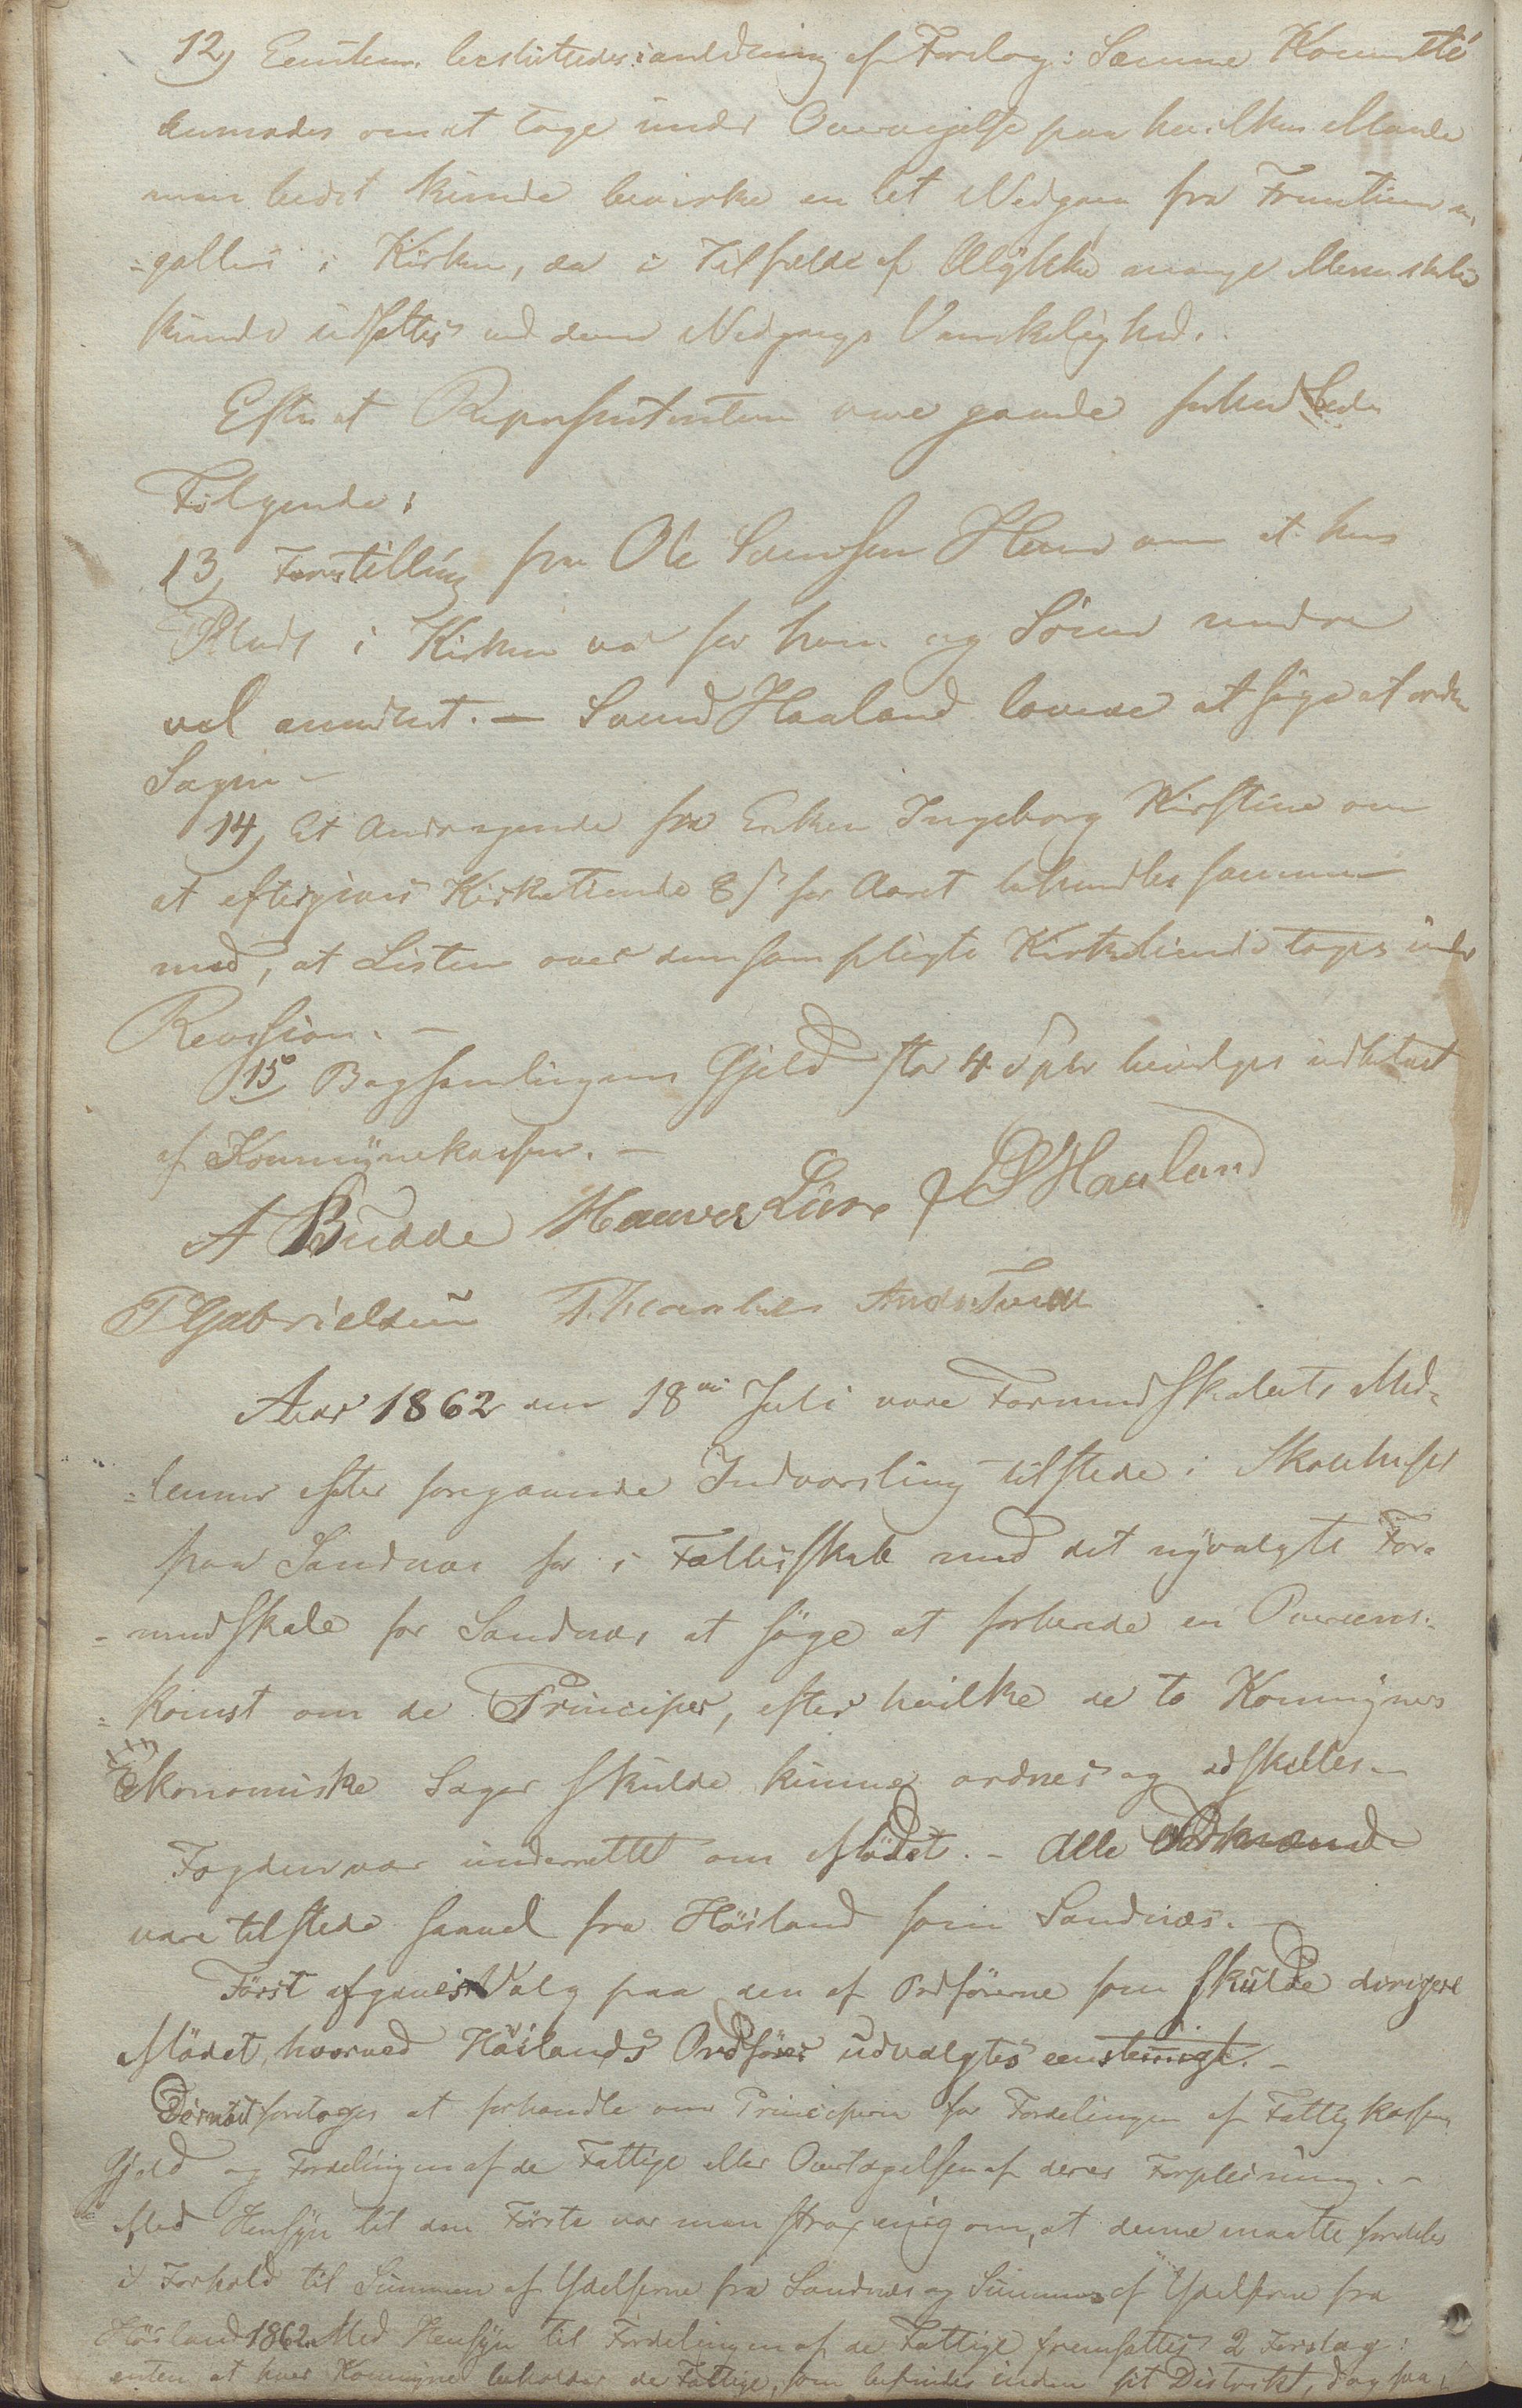 12, Eenstem. besluttedes i anledning af Forslag: Samme Komite
anmodes om at tage under Overveielse paa hvilken Maade
man bedst kunde bevirke en let Nedgang fra Fruentimmer-
-galleri i Kirken, da i Tilfælde af Ulykke mange Mennesker
kunde udsættes ved denne Nedgangs Vanskelighed.
Efter at Repræsentanterne vare gaaede forhandledes
Følgende:
13, Forestilling fra Ole Svendsen Hana om at hans
Plads i Kirken var for ham og Sønner mindre
vel anvendt. — Svend Haaland lovede at søge at ordne
Sagen —
14, Et Andragende fra Enken Ingeborg Kirstine om
at eftergives Kirketiende 8 s for Aaret behandles sammen
med, at Listen over dem som pligte Kirketiende tages under
Revision. —
15, Bogsamlingens Gjeld stor 4 Spdlr bevilges udbetalt
af Kommynekassen. —
A Budde Haaver Lura S Haaland
T Gabrielsen Anders
Aar 1862 den 18de Juli vare Formandskabets Med-
-lemmer efter foregaaende Indvarsling tilstede i Skolehuset
paa Sandnæs for i Fællesskab med det nyvalgte For-
-mandskab for Sandnæs at søge at forberede en Overeens-
-komst om de Principer, efter hvilke de to Kommyners
Økonomiske Sager skulde kunne ordnes og adskilles. —
Fogden var underrettet om Mødet. — Alle Formænd
vare tilstede saavel fra Høiland som Sandnæs. —
Først afgaves Valg paa den af Ordførerne som skulde dirigere
Mødet, hvorved Høilands Ordfører udvalgtes eenstemmigt. —
Dernæst foretoges at forhandle om Principerne for Fordelingen af Fattigkassens
Gjeld og Fordelingen af de Fattige eller Overtagelsen af deres Forpleining. —
Med Hensyn til den Første var man strax enig om, at denne maatte fordeles
i Forhold til Summen af Ydelserne fra Sandnæs og Summen af Ydelserne fra
Høiland 1862. Med Hensyn til Fordelingen af de Fattige fremsattes 2 Forslag:
enten at hver Kommyne beholder de Fattige, som befindes inden sit Distrikt, dog saa,